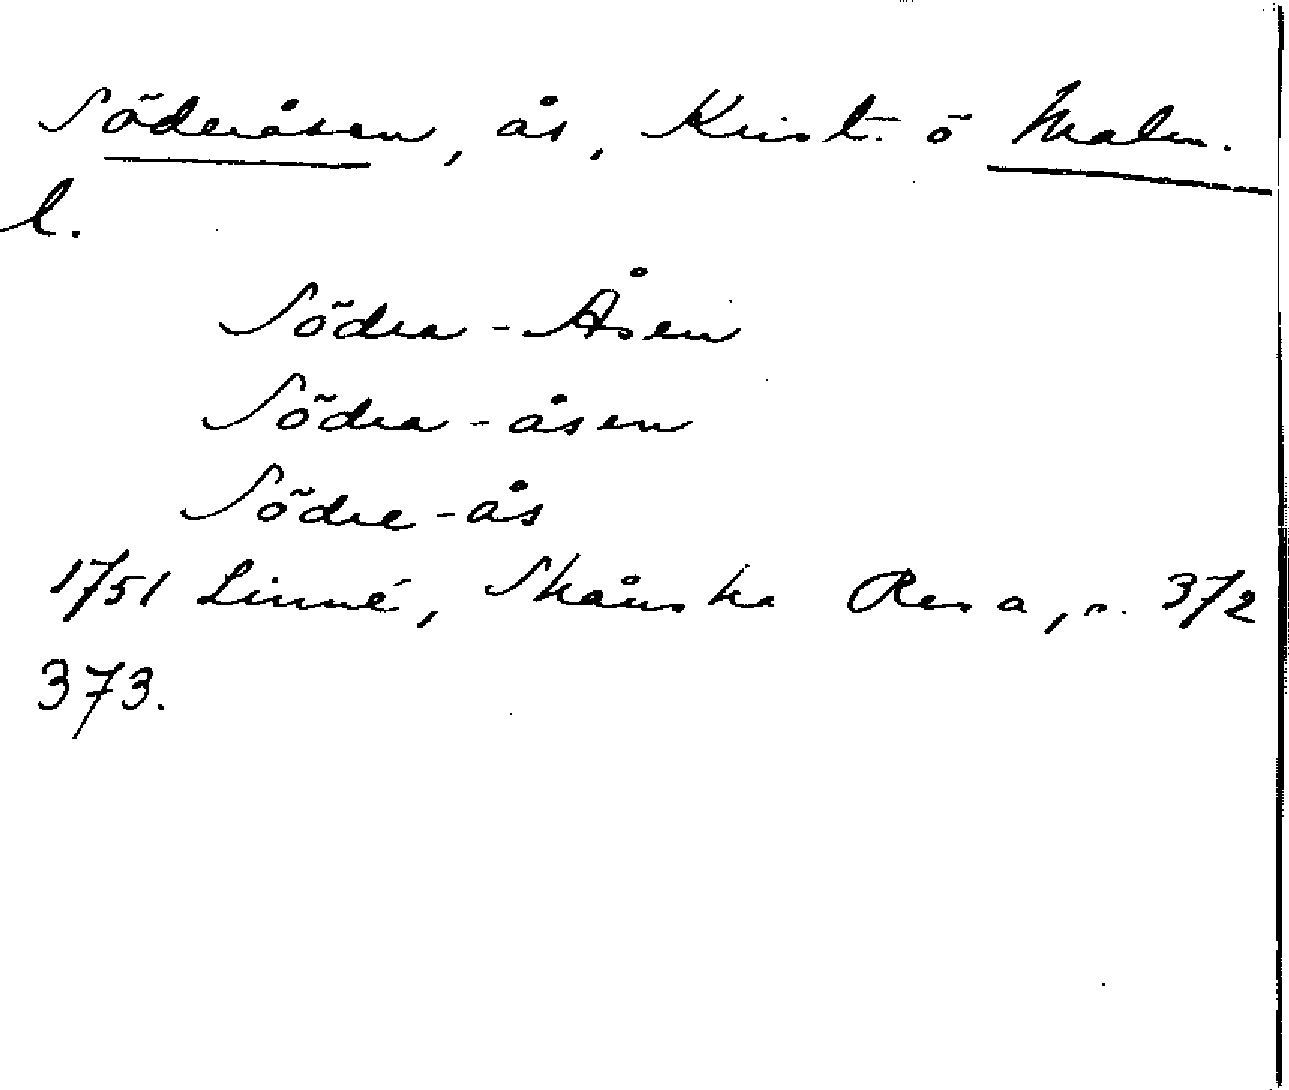 Söderåsen, ås, Krist. o Malm.
l.
Södra-Åsen
Södra-åsen
Södre-ås
1751 Linné, Skånska Resa, s. 372
373.